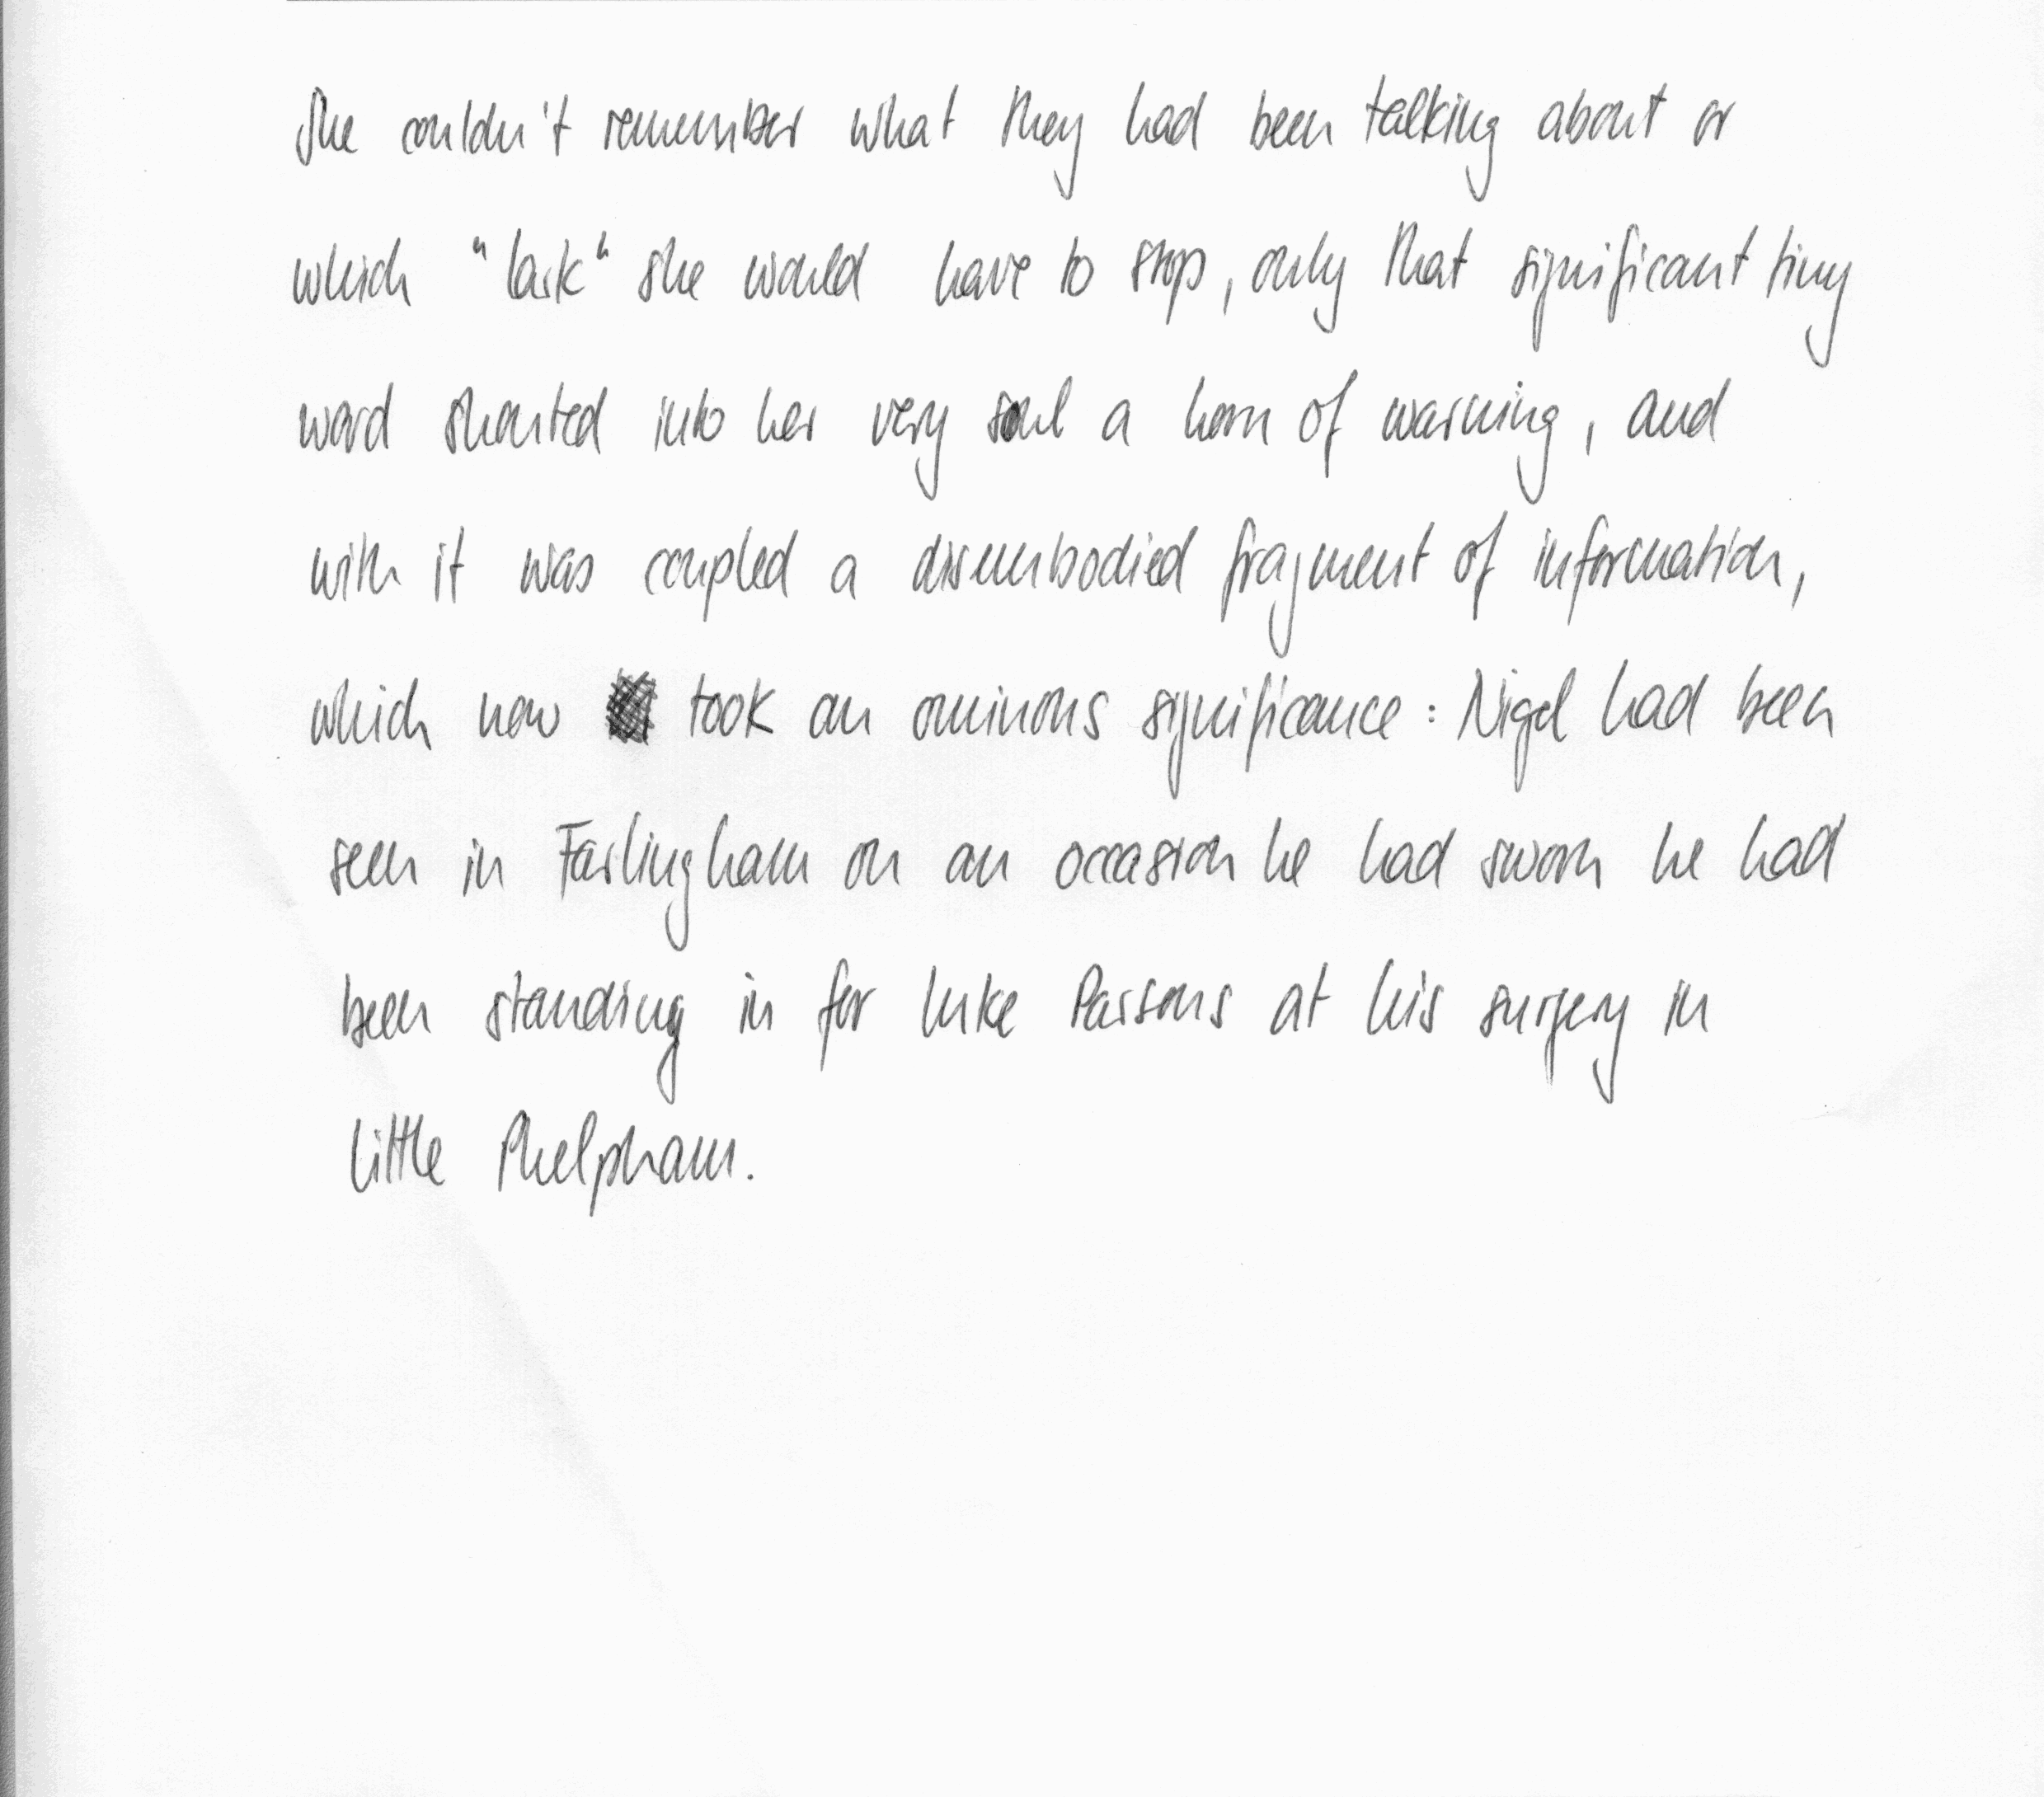 She couldn't remember what they had been talking about or
which "lark" she would have to stop, only that significant tiny
word shouted into her very soul a horn of warning, and
with it was coupled a disembodied fragment of information,
which now took an ominous significance: Nigel had been
seen in Farlingham on an occasion he had sworn he had
been standing in for Luke Parsons at his surgery in
Little Phelpham.